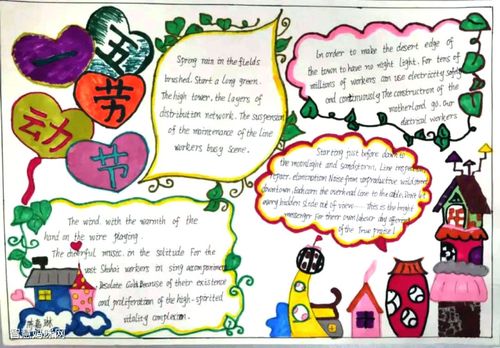 一
五
劳
动
节
Spring rain in the fields
brushed. Start a long green.
The high tower. the layers of
distribution network. The suspension
of the maintenance of the line
workers busy scene.
In order to make the desert edge of
the town to have no night light. For tens of
millions of workers can use electricity safely
and continuously The construction of the
motherland go. Our
electrical workers
Starting just before dawn to
the moonlight and sandstorm. Line inspection
repair. elimination Noise from unproductive wild
downtown. Each corn the overhead line to the cable.
every hidden side out of view. This is the bright
messenger For their own labour day offering
of the True praise!
The wind with the warmth of the
hand on the wire playing.
The cheerful music. in the solitude For the
vast workers in sing accompaniment
Desolate Gobi Because of their existence
and proliferation of the high-spirited
vitality complexion.
智慧妈咪网